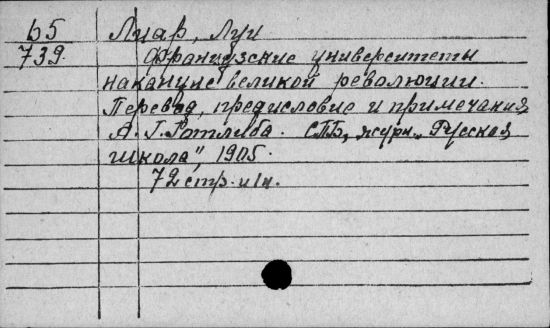 Б5
739.
Лиар, Луи
Французские университеты
накануне великой революции.
Перевод, предисловие и примечания
А. Г. Готлиба. СПБ, журн. „Русская
школа", 1905.
72 стр. и 1 н.